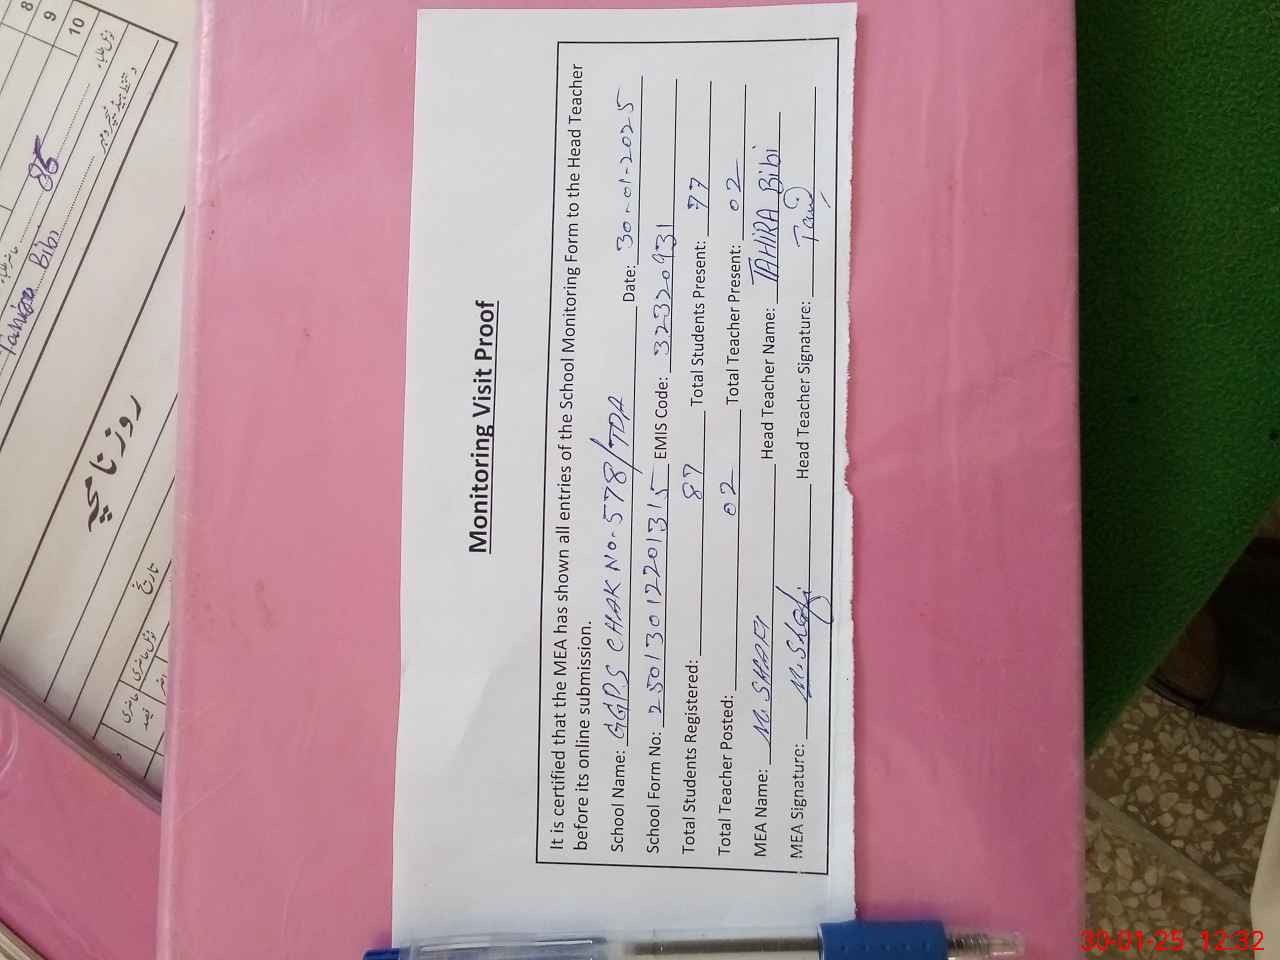 Monitoring Visit Proof
It is certified that the MEA has shown all entries of the School Monitoring Form to the Head Teacher
before its online submission.
School Name: GGPS CHAK No. 578/TDA Date: 30-01-2025
School Form No: 25013012201315 EMIS Code: 32320931
Total Students Registered: 87 Total Students Present: 77
Total Teacher Posted: 02 Total Teacher Present: 02
MEA Name: M. SHAFI Head Teacher Name: TAHIRA Bibi
MEA Signature: M. Shafi Head Teacher Signature:
8
9
10
Bibi
روزنامچہ
تاریخ
30-01-25 12:32